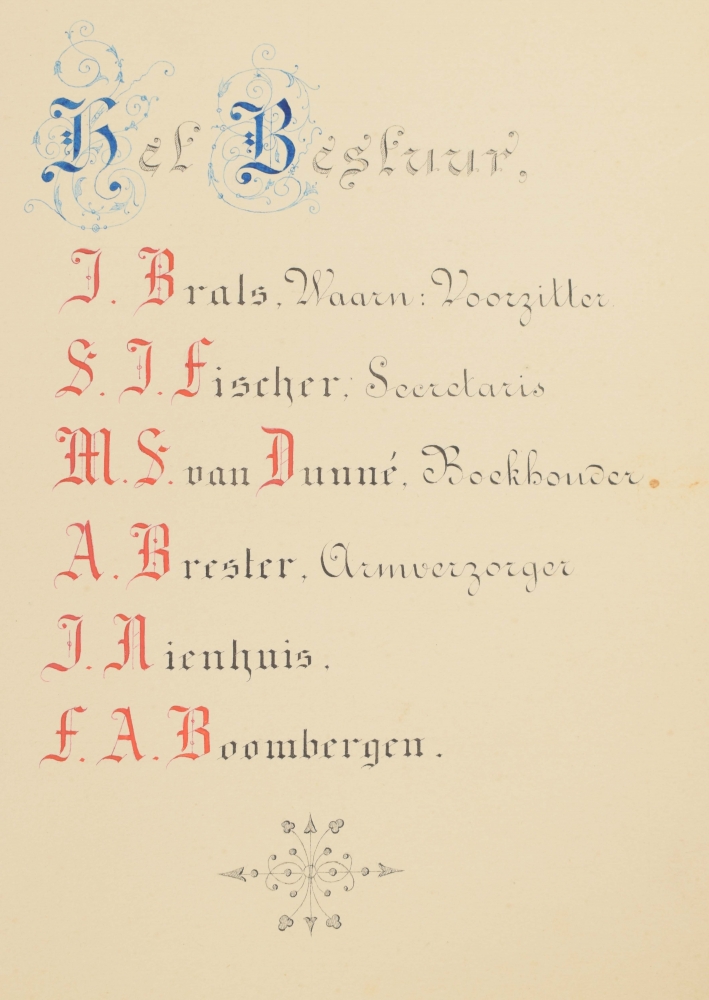 Het Bestuur,
J. Brals, Waarn: Voorzitter
S. J. Fischer, Secretaris
M. S. van Dunné, Boekhouder.
A. Brester, Armverzorger
J. Nienhuis.
F. A. Boombergen.